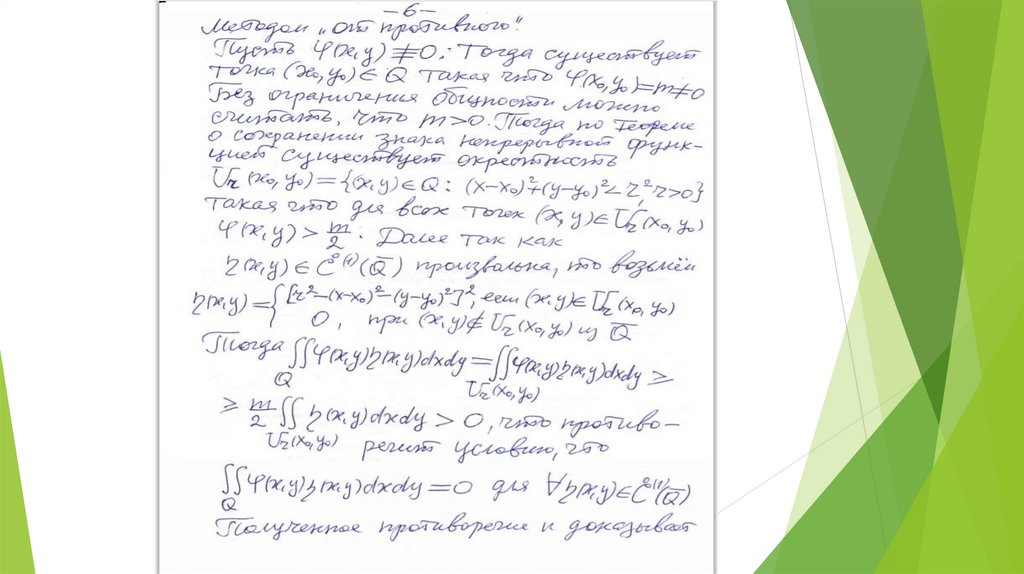 -6-
Методом „от противного".
Пусть φ(x,y)≢0. Тогда существует
точка (x₀,y₀)∈Q такая что φ(x₀,y₀)=m≠0
Без ограничения общности можно
считать, что m>0. Тогда по теореме
о сохранении знака непрерывной функ-
цией существует окрестность
U_r(x₀,y₀)={(x,y)∈Q: (x-x₀)²+(y-y₀)²<r², r>0}
такая что для всех точек (x,y)∈U_r(x₀,y₀)
φ(x,y)>m/2. Далее так как
η(x,y)∈C°⁽¹⁾(Q̄) произвольна, то возьмём
η(x,y)={[r²-(x-x₀)²-(y-y₀)²]², если (x,y)∈U_r(x₀,y₀)
0, при (x,y)∉U_r(x₀,y₀) из Q̄
Тогда ∬φ(x,y)η(x,y)dxdy=∬φ(x,y)η(x,y)dxdy≥
Q U_r(x₀,y₀)
≥m/2∬η(x,y)dxdy>0, что противо-
U_r(x₀,y₀) речит условию, что
∬φ(x,y)η(x,y)dxdy=0 для ∀η(x,y)∈C°⁽¹⁾(Q̄)
Q
Полученное противоречие и доказывает